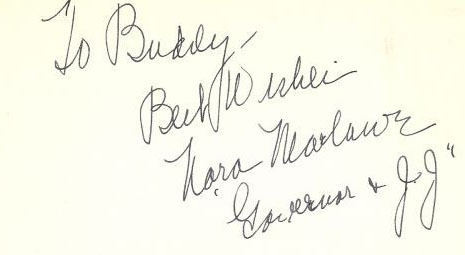 To Buddy -
Best Wishes
Nora Marlowe
"Governor & J.J"